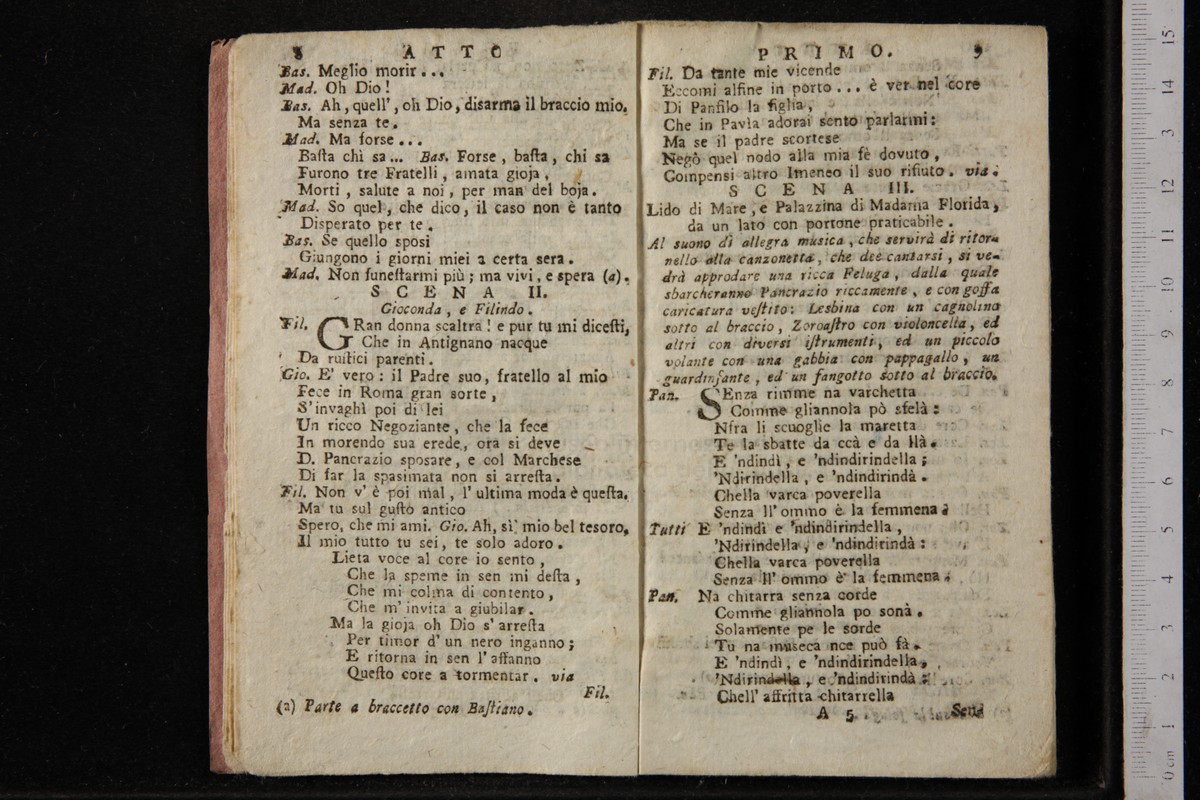 8 ATTO
Bas. Meglio morir...
Mad. Oh Dio!
Bas. Ah, quell', oh Dio, disarma il braccio mio.
Ma senza te.
Mad. Ma forse...
Baſta chi sa... Bas. Forse, baſta, chi sa
Furono tre Fratelli, amata gioja,
Morti, salute a noi, per man del boja.
Mad. So quel, che dico, il caso non è tanto
Disperato per te.
Bas. Se quello sposi
Giungono i giorni miei a certa sera.
Mad. Non funeſtarmi più; ma vivi, e spera (a).
SCENA II.
Gioconda, e Filindo.
Fil. GRan donna scaltra! e pur tu mi diceſti,
Che in Antignano nacque
Da ruſtici parenti.
Gio. E' vero: il Padre suo, fratello al mio
Fece in Roma gran sorte,
S'invaghì poi di lei
Un ricco Negoziante, che la fece
In morendo sua erede, ora si deve
D. Pancrazio sposare, e col Marchese
Di far la spasimata non si arreſta.
Fil. Non v'è poi mal, l'ultima moda è queſta.
Ma tu sul guſto antico
Spero, che mi ami. Gio. Ah, sì mio bel tesoro,
Il mio tutto tu sei, te solo adoro.
Lieta voce al core io sento,
Che la speme in sen mi deſta,
Che mi colma di contento,
Che m'invita a giubilar.
Ma la gioja oh Dio s'arreſta
Per timor d'un nero inganno;
E ritorna in sen l'affanno
Queſto core a tormentar. via
Fil.
(a) Parte a braccetto con Baſtiano.
PRIMO. 9
Fil. Da tante mie vicende
Eccomi alfine in porto... è ver nel core
Di Panfilo la figlia,
Che in Pavia adorai sento parlarmi:
Ma se il padre scortese
Negò quel nodo alla mia fè dovuto,
Compensi altro Imeneo il suo rifiuto. via.
SCENA III.
Lido di Mare, e Palazzina di Madama Florida,
da un lato con portone praticabile.
Al suono di allegra musica, che servirà di ritor-
nello alla canzonetta, che dee cantarsi, si ve-
drà approdare una ricca Feluga, dalla quale
sbarcheranno Pancrazio riccamente, e con goffa
caricatura veſtito: Lesbina con un cagnolino
sotto al braccio, Zoroaſtro con violoncello, ed
altri con diversi iſtrumenti, ed un piccolo
volante con una gabbia con pappagallo, un
guardinfante, ed un fangotto sotto al braccio.
Pan. SEnza rimme na varchetta
Comme gliannola pò sfelà:
Nfra li scuoglie la maretta
Te la sbatte da ccà e da llà.
E 'ndindì, e 'ndindirindella;
'Ndirindella, e 'ndindirindà.
Chella varca poverella
Senza ll' ommo è la femmena.
Tutti E 'ndindì e 'ndindirindella,
'Ndirindella, e 'ndindirindà:
Chella varca poverella
Senza ll' ommo è la femmena.
Pan. Na chitarra senza corde
Comme gliannola po sonà.
Solamente pe le sorde
Tu na museca nce può fà.
E 'ndindì, e 'ndindirindella,
'Ndirindella, e 'ndindirindà:
Chell' affritta chitarrella
A 5 Sen